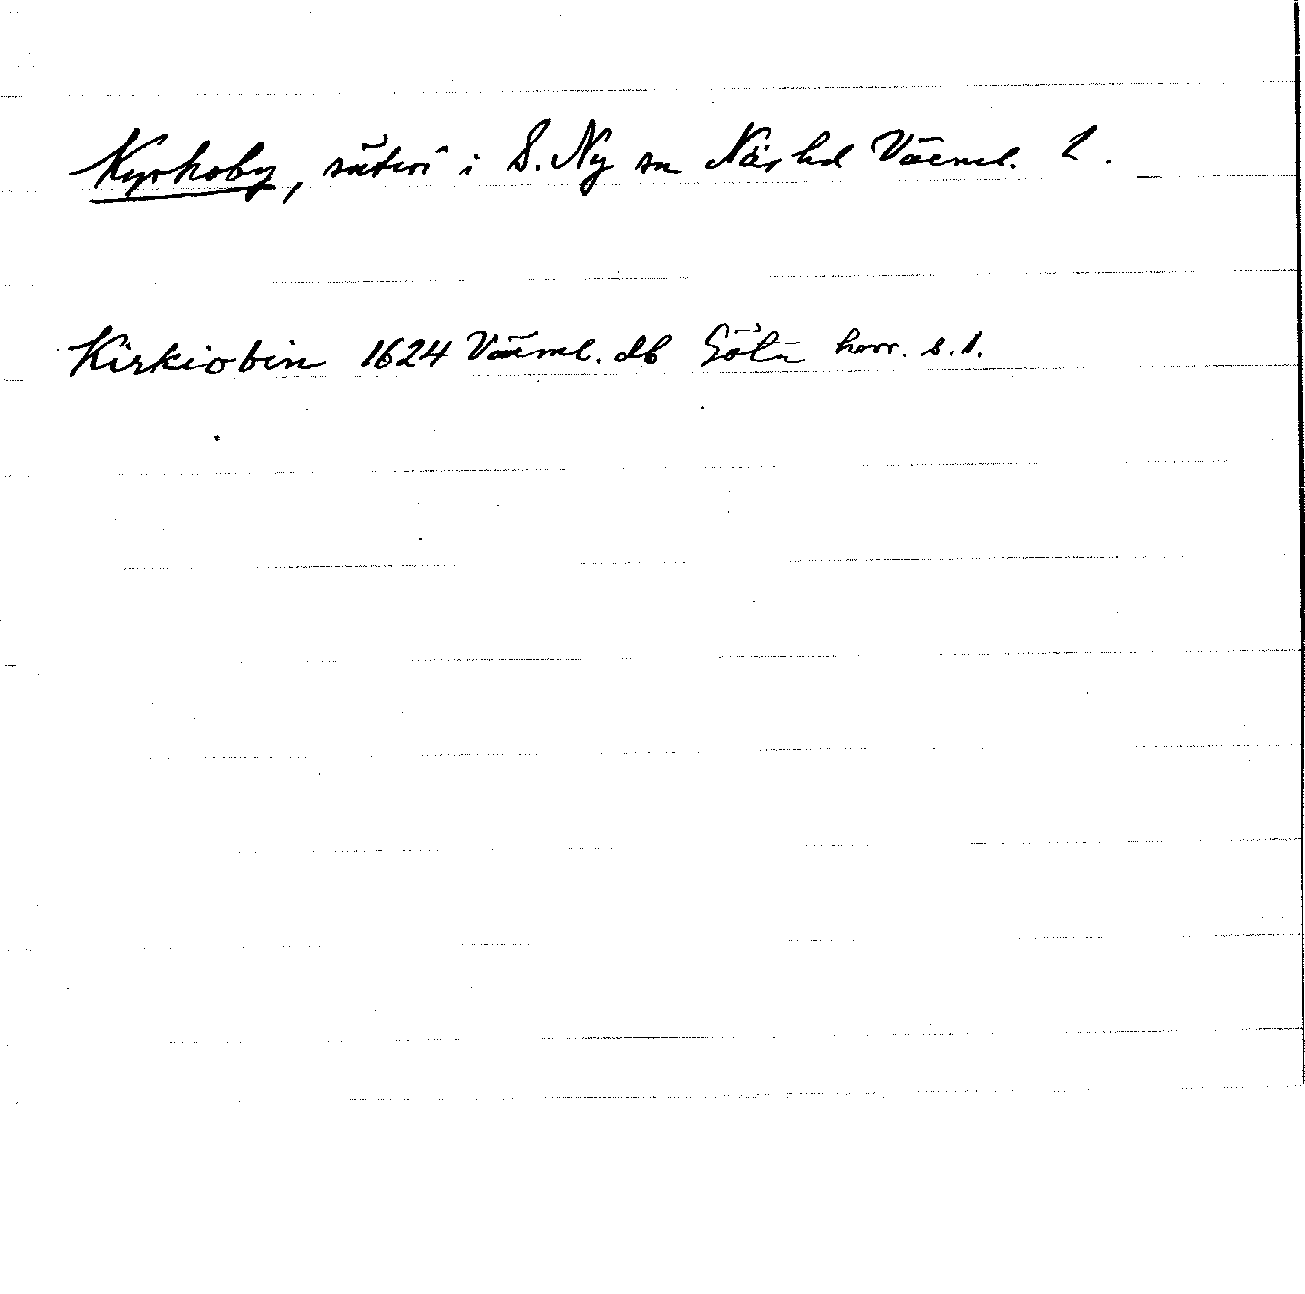 Kyrkoby, säteri i S. Ny sn Näs hd Värml. l.
Kirkiobin 1624 Värml. db Göta hovr. s. 1.